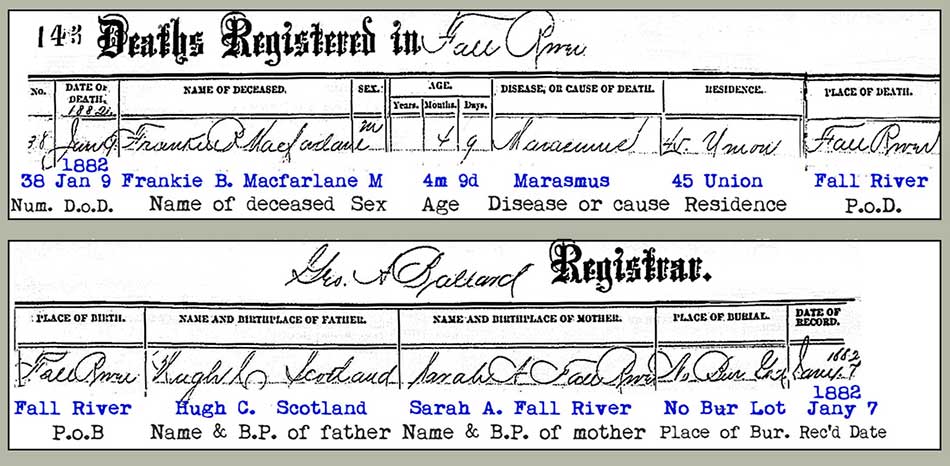 143 Deaths Registered in Fall River
No. DATE OF DEATH. NAME OF DECEASED. SEX. AGE. DISEASE, OR CAUSE OF DEATH. RESIDENCE. PLACE OF DEATH.
1882. Years. Months. Days.
38 Jan 9 Frankie B. Macfarlane M 4 9 Marasmus 45 Union Fall River
1882
38 Jan 9 Frankie B. Macfarlane M 4m 9d Marasmus 45 Union Fall River
Num. D.o.D. Name of deceased Sex Age Disease or cause Residence P.o.D.
Geo. A Ballard Registrar.
PLACE OF BIRTH. NAME AND BIRTHPLACE OF FATHER. NAME AND BIRTHPLACE OF MOTHER. PLACE OF BURIAL. DATE OF RECORD.
1882
Fall River Hugh C Scotland Sarah A Fall River No Bur Jany 7
1882
Fall River Hugh C. Scotland Sarah A. Fall River No Bur Lot Jany 7
P.o.B Name & B.P. of father Name & B.P. of mother Place of Bur. Rec'd Date